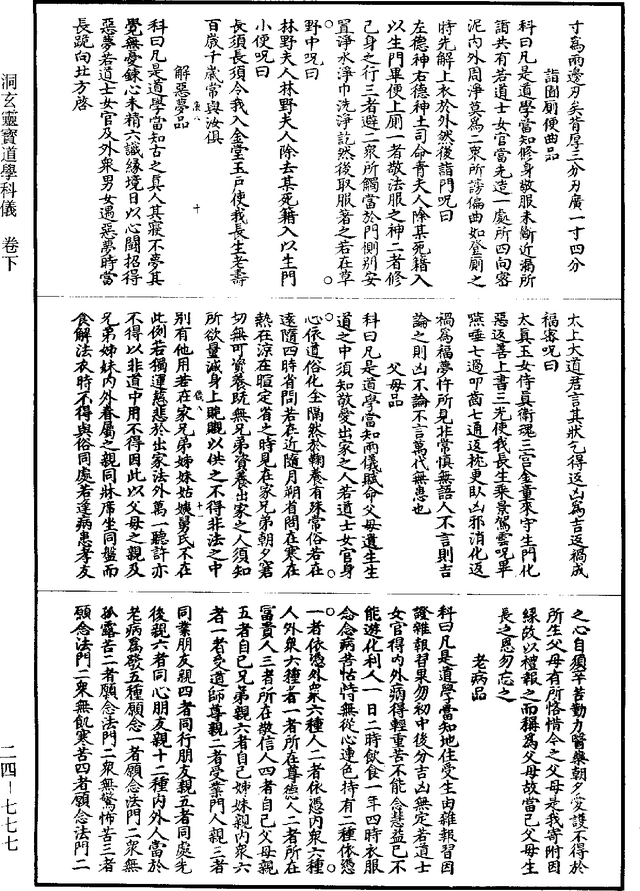 寸爲兩邊刃矣背厚三分刃廣一寸四分
詣圊廁便曲品
科曰凡是道學當知修身敬服未斷近漏所
詣共有若道士女官當先造一處所四向密
泥內外周淨莫爲二衆所謗偏曲如登廁之
時先解上衣於外然後詣門呪曰
左德神右德神土司命青夫人除其死籍入
以生門畢便上廁一者敬法服之神二者修
己身之行三者避二衆所觸當於門側別安
置淨水淨巾洗淨訖然後取服著之若在草
野中呪曰
林野夫人林野夫人除去其死籍入以生門
小便呪曰
長須長須令我入金堂玉戶使我長生老壽
百歲千歲常與汝俱
解惡夢品
科曰凡是道學當知古之真人其寢不夢其
覺無憂鍊心未精六識緣境日以心鬪招得
惡夢若道士女官及外衆男女遇惡夢時當
長跪向北方啓
太上大道君言其狀乞得返凶爲吉返禍成
福密呪曰
太真玉女侍真衛魂三宮金童來守生門化
惡返善上書三元使我長生乘景駕雲呪畢
嚥唾七過叩齒七通返枕更臥凶邪消化返
禍爲福夢仵所見非常慎無語人不言則吉
論之則凶不論不言萬代無患也
父母品
科曰凡是道學當知兩儀賦命父母遺生生
道之中須知敬愛出家之人若道士女官身
心依道俗化全隔然於鞠養有殊常俗若在
遠隨四時省問若在近隨月朔省問在寒在
熱在涼在暄定省之時見在家兄弟朝夕窘
切無可資養既無兄弟資養出家之人須知
所欲量減身上晚䞋以供之不得非法之中
別有他用若在家兄弟姊妹姑姨舅氏不在
此例若獨運慈悲於出家法外萬一聽許亦
不得以非道中用不得因此以父母之親及
兄弟姊妹內外眷屬之親同牀席坐同盤而
食解法衣時不得與俗同處若逢病患孝友
之心自須辛苦勤力醫藥朝夕愛護不得於
所生父母有所悋惜今之父母是我寄附因
緣故以禮報之而稱爲父母故當己父母生
長之恩勿忘之
老病品
科曰凡是道學當知地住受生由雜報習因
證雜報習果勿初中後分吉凶無定若道士
女官得內外病得輕重苦不能念慈益已不
能遊化利人一日二時飲食一年四時衣服
念念病苦怙恃無從心連色持有二種依憑
一者依憑外衆六種人二者依憑內衆六種
人外衆六種者一者所在尊德人二者所在
富貴人三者所在敬信人四者自己父母親
五者自己兄弟親六者自己姊妹親內衆六
者一者受道師尊親二者受業門人親三者
同業朋友親四者同行朋友親五者同處先
後親六者同心朋友親十二種內外人當於
老病爲發五種願念一者願念法門二衆無
孤露苦二者願念法門二衆無驚怖苦三者
願念法門二衆無飢寒苦四者願念法門二
洞玄靈寶道學科儀 卷下
二四－七七七